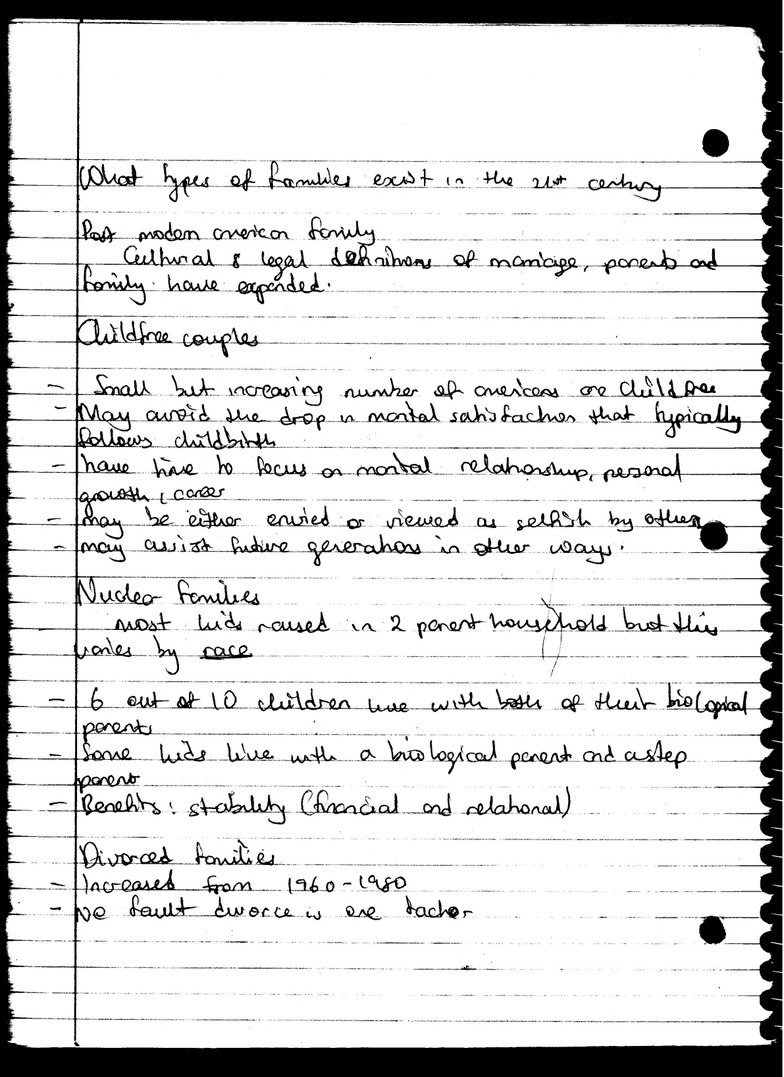 What types of families exist in the 21st century
Post modern american family
Cultural & legal definitions of marriage, parents and
family have expanded.
Childfree couples
- Small but increasing number of americans are childfree
- May avoid the drop in marital satisfaction that typically
follows childbirth
- have time to focus on marital relationship, personal
growth, career
- may be either envied or viewed as selfish by others
- may assist future generations in other ways.
Nuclear families
most kids raised in 2 parent household but this
varies by race
- 6 out of 10 children live with both of their biological
parents
- Some kids live with a biological parent and a step
parent
- Benefits: stability (financial and relational)
Divorced families
- Increased from 1960-1980
- No fault divorce is one factor